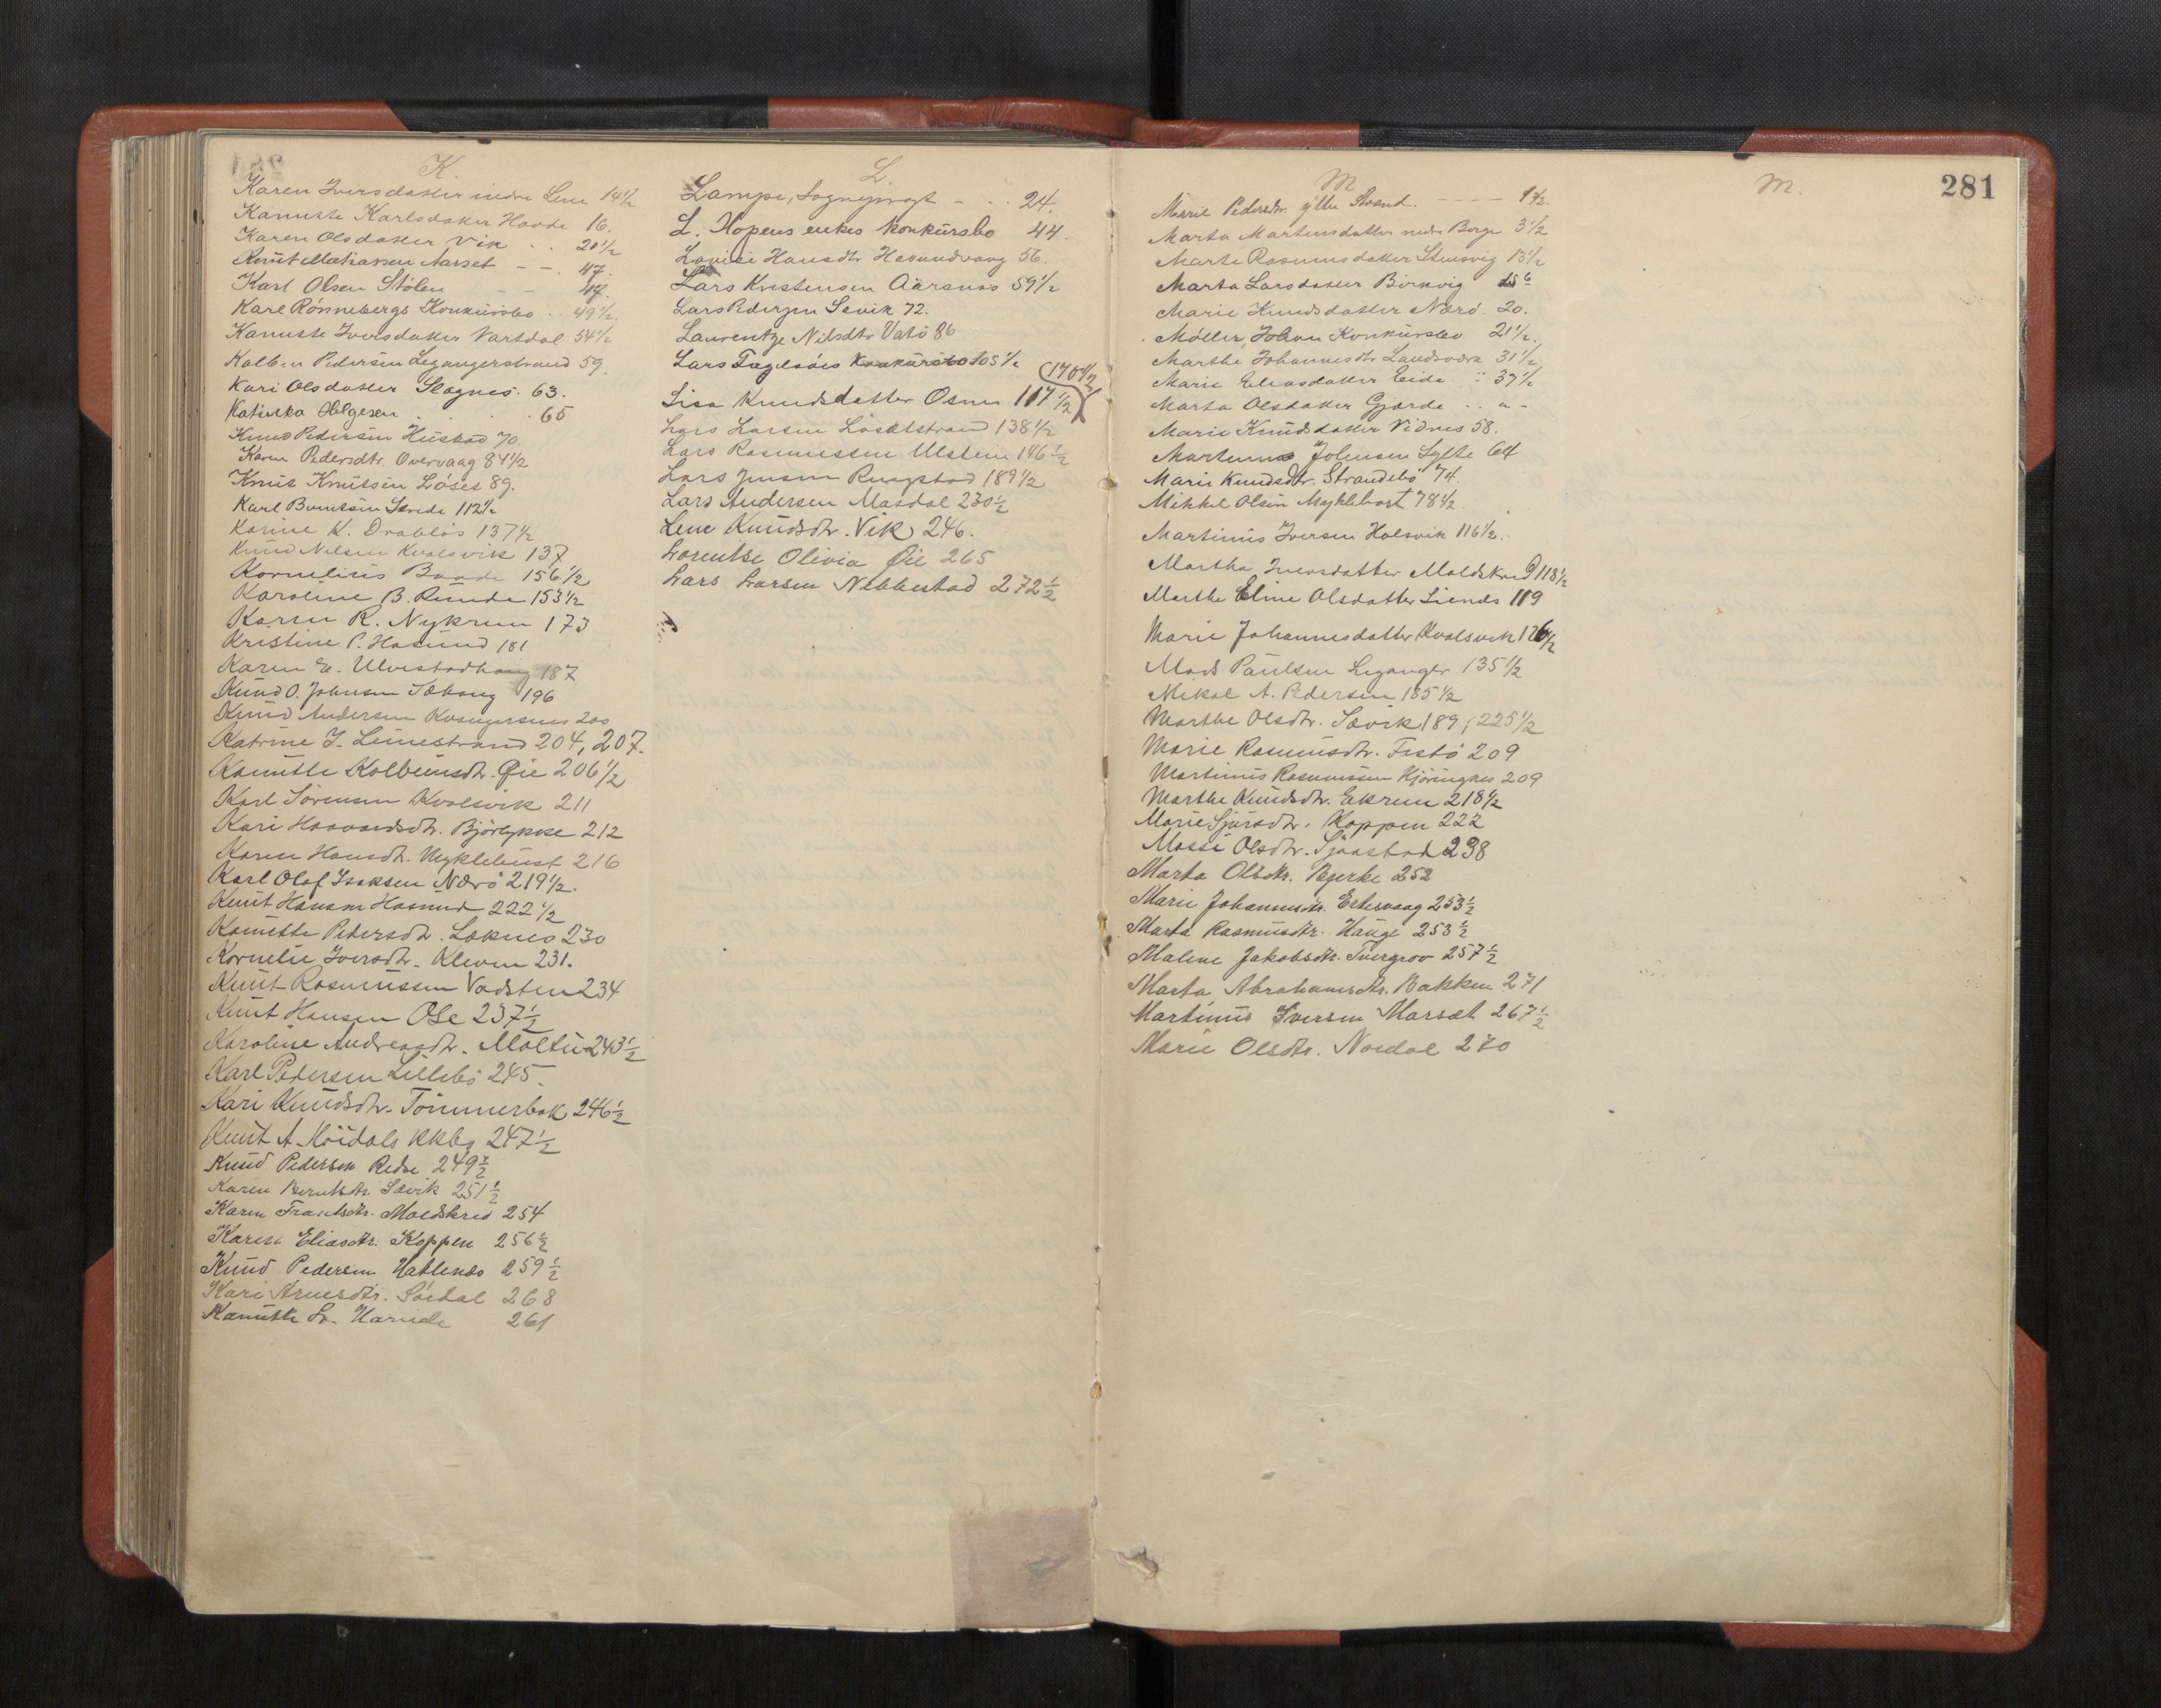 K.
Karen Iversdatter nedre Lem 14 1/2
Kanutte Karlsdatter Hovde 16.
Karen Olsdatter Vik . . 20 1/2
Knut Mathiassen Aarset - - . 47.
Karl Olsen Stølen - - 47.
Karl Rønnebergs Konkursbo . . 49 1/2.
Kanutte Iversdatter Vartdal 54 1/2
Kolben Pedersen Legangerstrand 59.
Kari Olsdatter Slagnes. 63.
Katinka Helgesen . . . 65
Knud Pedersen Hustad 70.
Karen Pedersdtr. Overvaag 84 1/2
Knut Knutsen Løset 89.
Karl Berntsen Sørede 112 1/2
Karine K. Drabløs 137 1/2
Knud Nelsen Kvalsvik 137
Kornelius Baade 156 1/2
Karoline B. Runde 153 1/2
Karen R. Nykrem 173
Kristine P. Hasund 181
Karen E. Ulvestadhaug 187
Knud O. Johnsen Sæbøng 196
Knud Andersen Kvangersnes 200
Katrine J. Leinestrand 204, 207.
Kanutte Kolbeinsdtr. Øie 206 1/2
Karl Sørensen Kvalsvik 211
Kari Haavardsdtr. Bjørlykke 212
Karen Hansdtr. Myklebust 216
Karl Olaf Isaksen Nærø 219 1/2.
Knut Hansen Hasund 222 1/2
Kanutte Pedersdtr. Løknes 230
Kornelie Iversdtr. Kleven 231.
Knut Rasmussen Vadsten 234
Knut Hansen Ose 237 1/2
Karoline Andreasdtr. Moltu 243 1/2
Karl Pedersen Lillebø 245.
Kari Knudsdtr. Tømmerbak 246 1/2
Knut A. Høidals kkbo 247 1/2
Knud Pedersen Redse 249 1/2
Karen Berntsdtr. Sævik 251 1/2
Karen Frantsdtr. Moldskred 254
Karen Eliasdtr. Koppen 256 1/2
Knud Pedersen Hatlenes 259 1/2
Kari Arnesdtr. Sørdal 268
Kanutte Hareide 261
L.
Lampe, Sogneprest - - . . 24.
L. Kopens enkes konkursbo 44.
Lovise Hansdtr Harundvaag 56.
Lars Kristensen Aarsnes 59 1/2
Lars Pedersen Sævik 72.
Laurentze Nilsdtr Vatø 86
Lars Fagelsøes Konkursbo 105 1/2
(170 1/2)
Lisa Knudsdatter Osnes 117 1/2
Lars Larsen Løsetstrand 138 1/2
Lars Rasmussen Ulstein 146 1/2
Lars Jensen Ringstad 189 1/2
Lars Andersen Masdal 230 1/2
Lene Knudsdtr. Vik 246.
Lorentse Olivia Øie 265
Lars Larsen Nebbestad 272 1/2
M
Marie Pedersdtr. ytre Strand. - - - - 1 1/2.
Marta Martensdatter nedre Berge 3 1/2
Marte Rasmusdatter Stensvig 13 1/2
Marta Larsdatter Birkvig 15
Marie Knudsdatter Nærø. 20.
Møller, Johan Konkursbo 21 1/2.
Marthe Johannesdtr Landsværk 31 1/2
Marie Eliasdatter Eide . . 37 1/2
Marta Olsdatter Gjærde . . " -
Marie Knudsdatter Vidnes 58.
Martinus Johnsen Sylte 64
Marie Knudsdtr. Strandebø 74.
Mikkel Olsen Myklebost 78 1/2
Martinus Iversen Holsvik 116 1/2.
Martha Iversdatter Moldskred 118 1/2
Marthe Eline Olsdatter Lienes 119
Marie Johannesdatter Kvalsvik 126 1/2
Mads Paulsen Leganger 135 1/2
Mikal A. Pedersen 155 1/2
Marthe Olsdtr. Sævik 189, 225 1/2
Marie Rasmusdtr. Festø 209
Martinus Rasmussen Kjøringnes 209
Marthe Knudsdtr. Ekrem 218 1/2
Marie Sjursdtr. Koppen 222
Massi Olsdtr. Sjaastad 238
Marta Olsdtr. Bjerke 252
Marie Johannesdtr. Eltesvaag 253 1/2
Marta Rasmusdtr. Hauge 253 1/2
Malene Jakobsdtr. Tvergrov 257 1/2
Marta Abrahamsdtr. Bakken 271
Martinus Iversen Marsæt 267 1/2
Marie Olsdtr. Nordal 270
M.
281